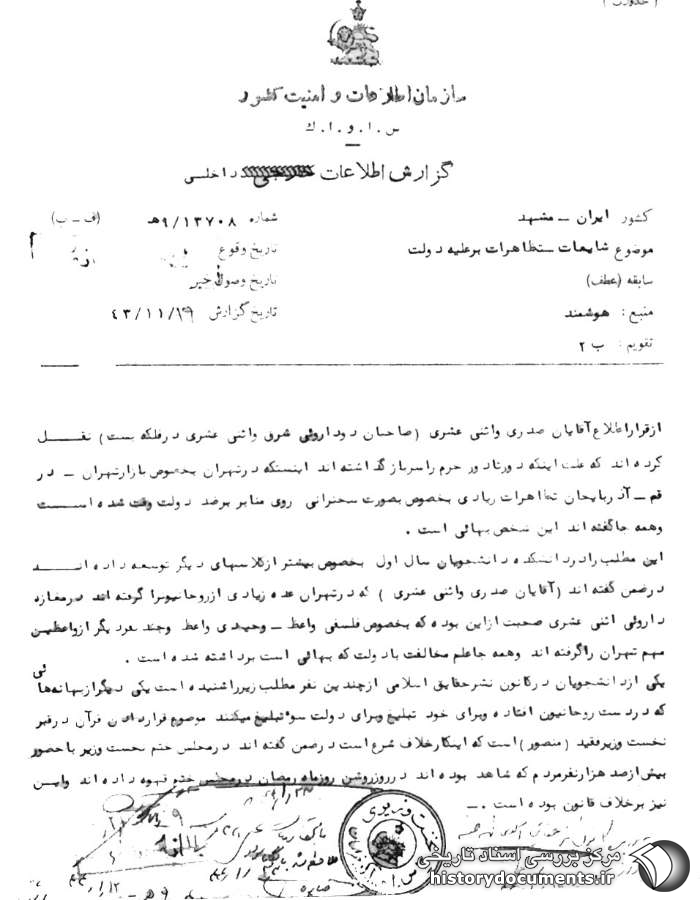 سازمان اطلاعات و امنیت کشور
س . ا . و . ا . ك
گزارش اطلاعات داخلی
کشور ایران – مشهد
شماره ۹/۱۳۷۰۸ه‍
(ف – ب)
موضوع شایعات – تظاهرات برعلیه دولت
تاریخ وقوع
سابقه (عطف)
تاریخ وصول خبر
منبع : هوشمند
تاریخ گزارش ۴۳/۱۱/۱۹
تقویم : ب ۲
ازقراراطلاع آقایان صدری واثنی عشری (صاحبان دوداروئی شرق واثنی عشری درفلکه بست) نقل
کرده اند که علت اینکه دورتادور حرم راسرباز گذاشته اند اینستکه درتهران بخصوص بازارتهران – در
قم – آذربایجان تظاهرات زیادی بخصوص بصورت سخنرانی روی منابر برضد دولت وقت شده است
وهمه جاگفته اند این شخص بهائی است .
این مطلب رادردانشکده دانشجویان سال اول بخصوص بیشتر ازکلاسهای دیگر توسعه داده اند
درضمن گفته اند (آقایان صدری واثنی عشری ) که درتهران عده زیادی ازروحانیونرا گرفته اند درمغازه
داروئی اثنی عشری صحبت ازاین بوده که بخصوص فلسفی واعظ – وحیدی واعظ وچند نفردیگر ازواعظین
مهم تهران راگرفته اند وهمه جاعلم مخالفت بادولت که بهائی است برداشته شده است .
یکی ازدانشجویان درکانون نشرحقایق اسلامی ازچندین نفر مطلب زیرراشنیده است یکی دیگرازبهانه‌هائی
که دردست روحانیون افتاده وبرای خود تبلیغ وبرای دولت سوء تبلیغ میکنند موضوع قراردادن قرآن درقبر
نخست وزیرفقید (منصور) است که اینکارخلاف شرع است درضمن گفته اند درمجلس ختم نخست وزیر باحضور
بیش ازصد هزارنفرمردم که شاهد بوده اند درروزروشن روزماه رمضان درمجلس ختم قهوه داده اند واین
نیز برخلاف قانون بوده است . –
مرکز بررسی اسناد تاریخی
historydocuments.ir